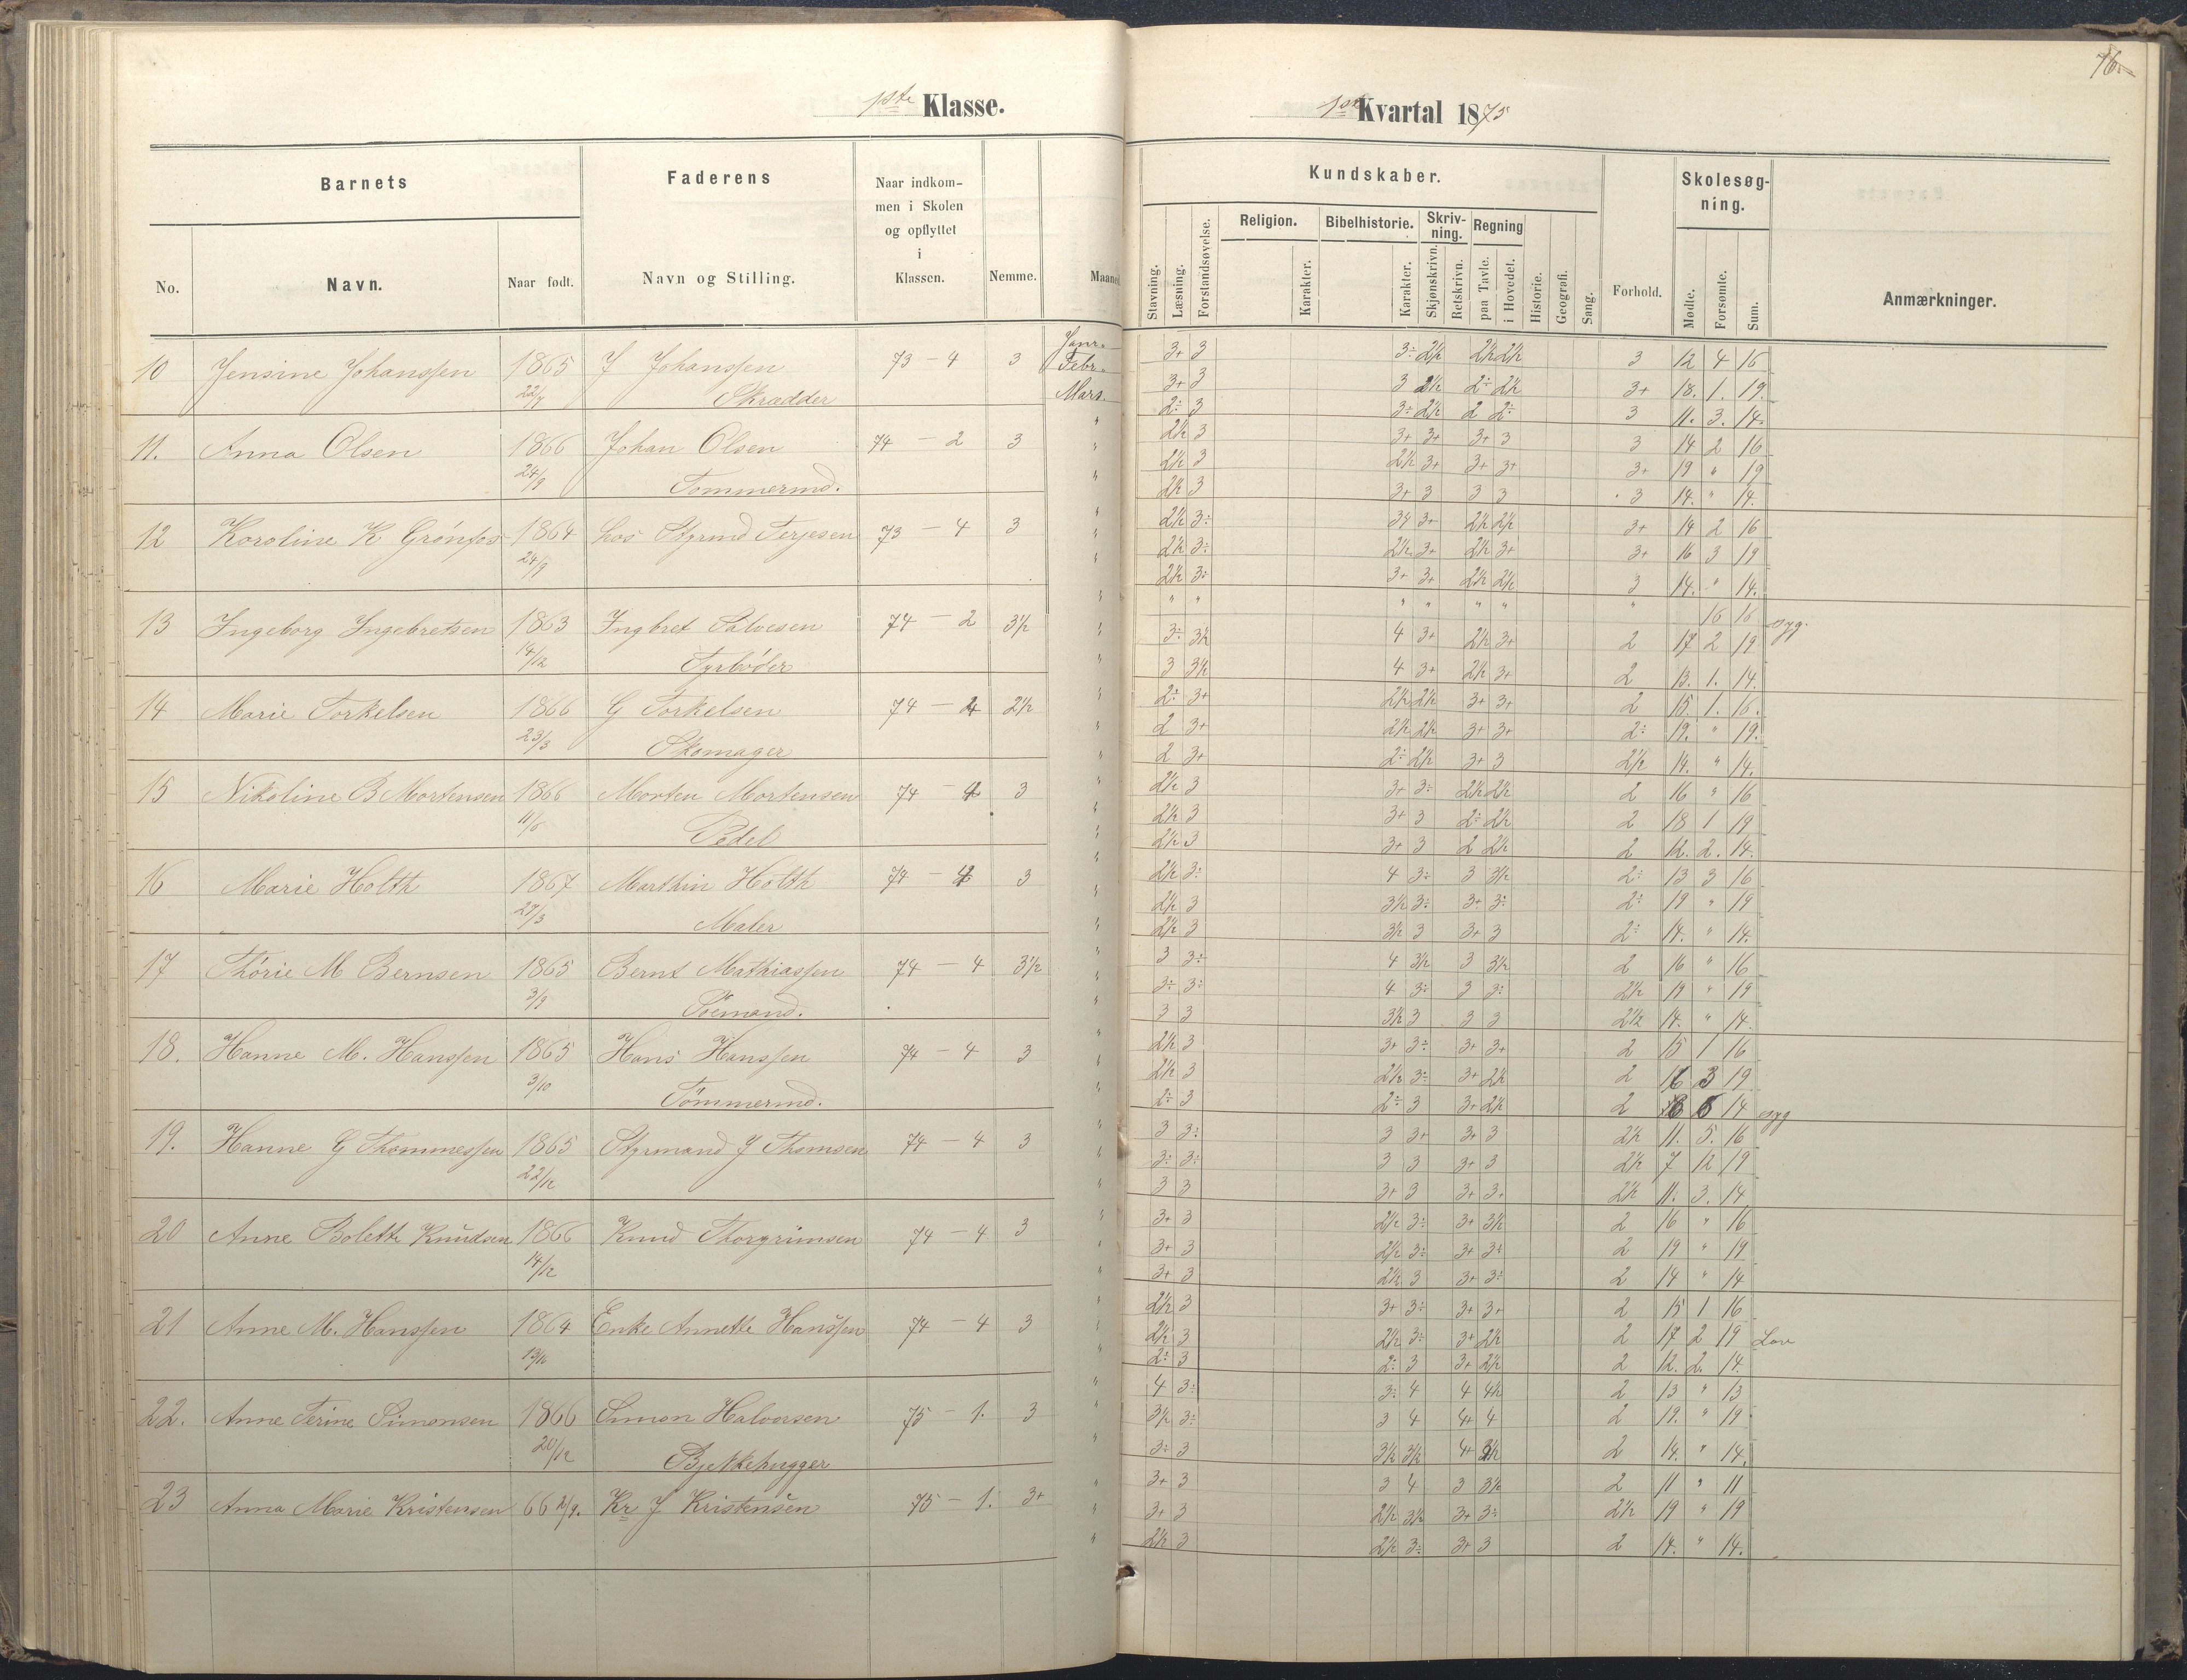 76.
1ste Klasse.
1ste Kvartal 1875
Barnets
Faderens
Naar indkommen i Skolen og opflyttet i Klassen.
Nemme.
Maaned
No.
Navn.
Naar født.
Navn og Stilling.
Kundskaber.
Stavning.
Læsning.
Forstandsøvelse.
Religion.
Karakter.
Bibelhistorie.
Karakter.
Skrivning.
Skjønskrivn.
Retskrivn.
Regning
paa Tavle.
i Hovedet.
Historie.
Geografi.
Sang.
Forhold.
Skolesøgning.
Mødte.
Forsømte.
Sum.
Anmærkninger.
10 Jensine Johanssen 1865 J Johanssen 73 - 4 3 Janr.
Febr.
22/7 Skrædder Mars
11. Anna Olsen 1866 Johan Olsen 74 - 2 3
24/9 Tømmermd.
12 Karoline K Grønfos 1864 hos Styrmd Terjesen 73 - 4 3
24/9
13 Ingeborg Ingebretsen 1863 Ingbret Salvesen 74 - 2 3½
14/12 Fyrbøder
14 Marie Torkelsen 1866 G Torkelsen 74 - 4 2½
23/3 Skomager
15 Nikoline B Mortensen 1866 Morten Mortensen 74 - 4 3
11/6 Pedel
16 Marie Holth 1867 Marthin Holth 74 - 4 3
29/3 Maler
17 Thorie M Bernsen 1865 Bernt Mathiassen 74 - 4 3½
3/9 Sømand.
18. Hanne M. Hanssen 1865 Hans Hanssen 74 - 4 3
3/10 Tömmermd.
19. Hanne G Thommessen 1865 Styrmand J Thomsen 74 - 4 3
22/12
20 Anne Bolette Knudsen 1866 Knud Thorgrimsen 74 - 4 3
14/12
21 Anne M. Hanssen 1864 Enke Annette Hanssen 74 - 4 3
22. Anne Terine Simonsen 1866 Simon Halvorsen 75 - 1. 3
20/12 Bjelkehugger
23 Anna Marie Kristensen 66 2/9. Kr J Kristensen 75 - 1. 3+
3+ 3 3÷ 2½ 2½ 2½ 3 12 4 16
3+ 3 3 2½ 2÷ 2½ 3+ 18. 1. 19.
2÷ 3 3÷ 2½ 2 2÷ 3 11. 3. 14.
2½ 3 3+ 3+ 3+ 3 3 14 2 16
2½ 3 2½ 3+ 3+ 3+ 3+ 19 " 19
2½ 3 3+ 3 3 3 3 14. " 14.
2½ 3÷ 3+ 2½ 2½ 3+ 14 2 16
2½ 3÷ 2½ 3+ 2½ 3+ 3+ 16 3 19
2½ 3÷ 3+ 3+ 2½ 2½ 3 14. " 14.
" " " " " " " 16 16 syg.
3÷ 3½ 4 3+ 2½ 3+ 2 17 2 19
3 3½ 4 3+ 2½ 3+ 2 13. 1. 14.
2÷ 3+ 2½ 2½ 3+ 3+ 2 15 1. 16.
2 3+ 2½ 2½ 3+ 3+ 2÷ 19. " 19.
2 3+ 2÷ 2½ 3+ 3 2½ 14. " 14.
2½ 3 3+ 3÷ 2½ 2½ 2 16 " 16
2½ 3 3+ 3 2÷ 2½ 2 18 1 19
2½ 3 3+ 3 2 2½ 2 12. 2. 14.
2½ 3÷ 4 3÷ 3 3½ 2÷ 13 3 16
2½ 3 3½ 3÷ 3+ 3÷ 2÷ 19 " 19
2½ 3 3½ 3 3+ 3 2÷ 14. " 14.
3 3÷ 4 3½ 3 3½ 2 16 " 16
3÷ 3÷ 4 3÷ 3 3÷ 2½ 19 " 19
3 3 3½ 3 3 3 2½ 14. " 14.
2½ 3 3+ 3÷ 3+ 3+ 2 15 1 16
2½ 3 2½ 3÷ 3+ 2½ 2 16 3 19
2÷ 3 2÷ 3 3+ 2½ 2 14 syg
3 3÷ 3 3+ 3+ 3 2½ 11. 5. 16
3÷ 3÷ 3 3 3+ 3 2½ 7 12 19
3 3 3+ 3 3+ 3+ 2½ 11. 3. 14
3+ 3 2½ 3÷ 3+ 3½ 2 16 " 16
3+ 3 2½ 3÷ 3+ 3÷ 2 19 " 19
3+ 3 2½ 3 3+ 3÷ 2 14 " 14
2½ 3 3+ 3÷ 3+ 3+ 2 15 1 16
2½ 3 2½ 3÷ 3+ 2½ 2 17 2 19 Lov
2÷ 3 2÷ 3 3+ 2½ 2 12. 2. 14
4 3÷ 3÷ 4 4 4½ 2 13 " 13
3½ 3÷ 3 4 4+ 4 2 19. " 19
3÷ 3 3½ 3½ 4+ 2 14. " 14.
3+ 3 3 4 3 3½ 2 11 " 11
3+ 3 2½ 3½ 3+ 3÷ 2½ 19 " 19
2½ 3 2½ 3÷ 3+ 3 2 14. " 14.